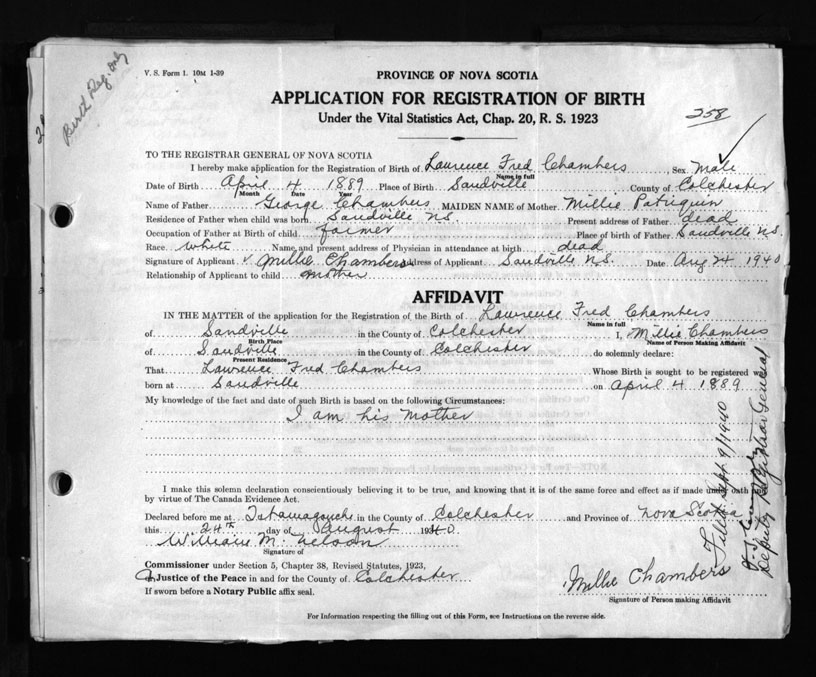 Birth Reg. only
V. S. Form 1. 10M 1-39
PROVINCE OF NOVA SCOTIA
APPLICATION FOR REGISTRATION OF BIRTH
258
Under the Vital Statistics Act, Chap. 20, R. S. 1923
TO THE REGISTRAR GENERAL OF NOVA SCOTIA
I hereby make application for the Registration of Birth of Lawrence Fred Chambers Sex Male
Name in full
Date of Birth April 4 1889 Place of Birth Sandville County of Colchester
Month Date Year
Name of Father George Chambers MAIDEN NAME of Mother Millie Patriquin
Residence of Father when child was born Sandville N.S. Present address of Father dead
Occupation of Father at Birth of child farmer Place of birth of Father Sandville N.S.
Race white Name and present address of Physician in attendance at birth dead
Signature of Applicant Millie Chambers Address of Applicant Sandville N.S. Date Aug 24 1940
Relationship of Applicant to child mother
AFFIDAVIT
IN THE MATTER of the application for the Registration of the Birth of Lawrence Fred Chambers
Name in full
of Sandville in the County of Colchester I, Millie Chambers
Birth Place Name of Person Making Affidavit
of Sandville in the County of Colchester do solemnly declare:
Present Residence
That Lawrence Fred Chambers Whose Birth is sought to be registered was
born at Sandville on April 4 1889
My knowledge of the fact and date of such Birth is based on the following Circumstances:
I am his Mother
I make this solemn declaration conscientiously believing it to be true, and knowing that it is of the same force and effect as if made under oath and
by virtue of The Canada Evidence Act.
Declared before me at Tatamagouche in the County of Colchester and Province of Nova Scotia
this 24th day of August 1940
William M. Nelson
Signature of
Commissioner under Section 5, Chapter 38, Revised Statutes, 1923,
Or Justice of the Peace in and for the County of Colchester
If sworn before a Notary Public affix seal.
Millie Chambers
Signature of Person making Affidavit
For Information respecting the filling out of this Form, see Instructions on the reverse side.
Filed Sept. 9/1940
Deputy Registrar General